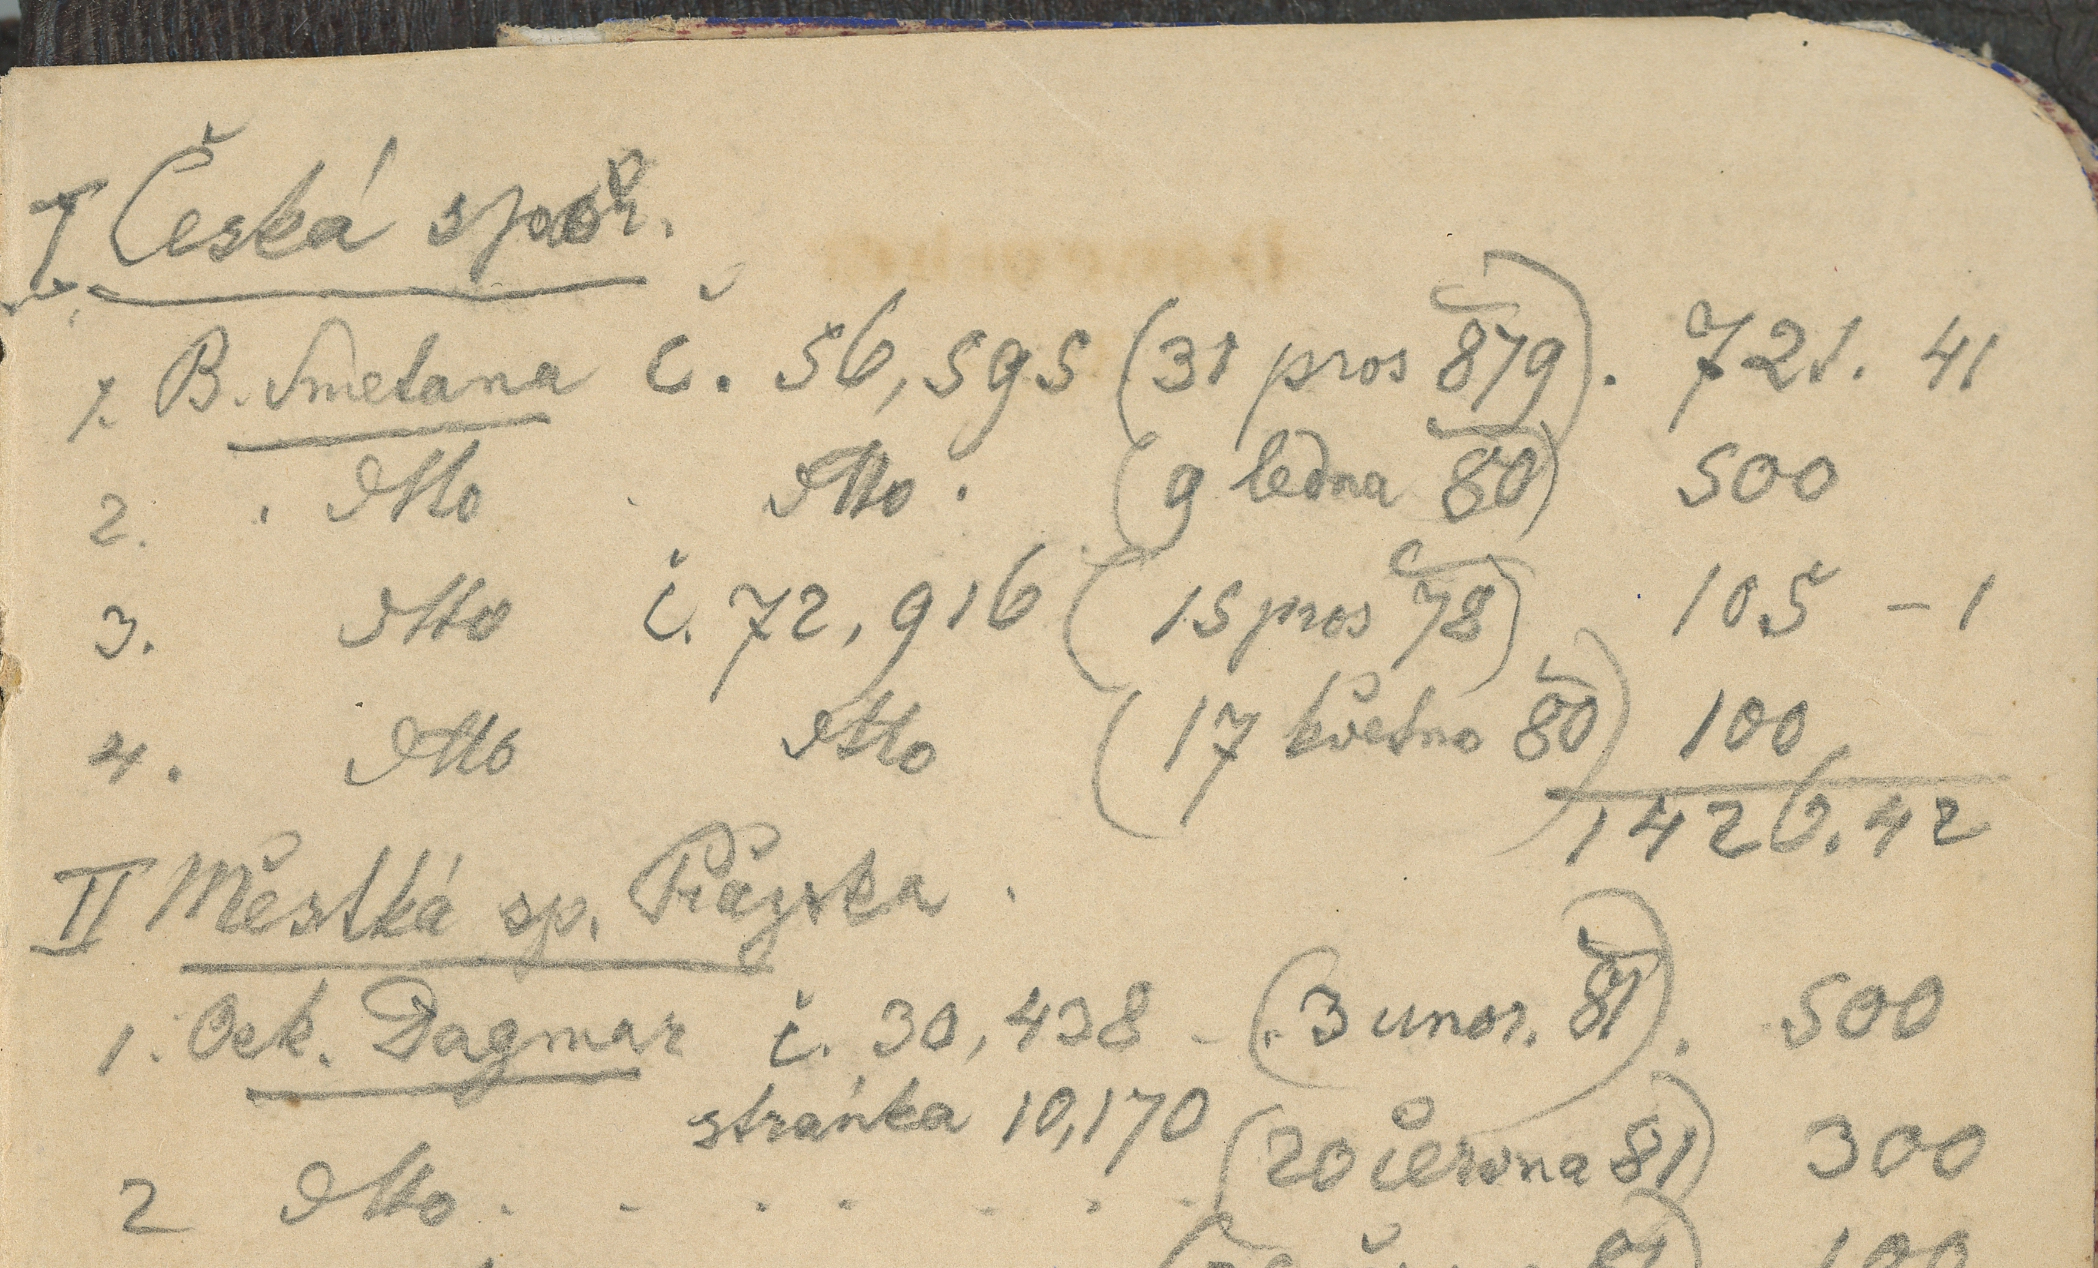 I. Česká spoř.
1. B. Smetana č. 56,595 (31 pros 879). 721. 41
2. dtto dtto. (9 ledna 80) 500
3. dtto č. 72,916 (15 pros 78) 105 - 1
4. dtto dtto (17 květno 80) 100
1426.42
II Městká sp. Pražska.
1. Osk. Dagmar č. 30,438 - (3 unor. 81). 500
stránka 10,170
2 dtto . . . . . . (20 června 81) 300
81) 100